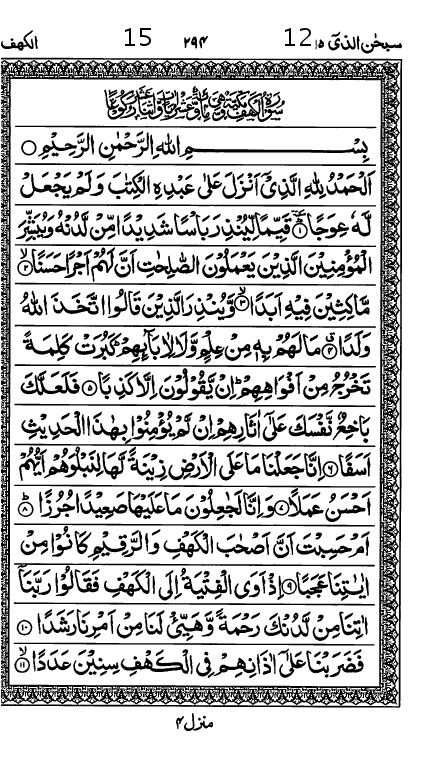 سبحٰن الذیٓ ۱۵ 12 ۲۹۴ 15 الکھف
بِسْمِ اللّٰهِ الرَّحْمٰنِ الرَّحِيْمِ
اَلْحَمْدُ لِلّٰهِ الَّذِىْۤ اَنْزَلَ عَلٰى عَبْدِهِ الْكِتٰبَ وَلَمْ يَجْعَلْ
لَّهٗ عِوَجًا ؕ‏﴿۱﴾ قَيِّمًا لِّيُنْذِرَ بَاْسًا شَدِيْدًا مِّنْ لَّدُنْهُ وَيُبَشِّرَ
الْمُؤْمِنِيْنَ الَّذِيْنَ يَعْمَلُوْنَ الصّٰلِحٰتِ اَنَّ لَهُمْ اَجْرًا حَسَنًا ۙ‏﴿۲﴾
مَّاكِثِيْنَ فِيْهِ اَبَدًا ۙ‏﴿۳﴾ وَّيُنْذِرَ الَّذِيْنَ قَالُوا اتَّخَذَ اللّٰهُ
وَلَدًا ۗ‏﴿۴﴾ مَا لَهُمْ بِهٖ مِنْ عِلْمٍ وَّلَا لِاٰبَآٮِٕهِمْ ؕ كَبُرَتْ كَلِمَةً
تَخْرُجُ مِنْ اَفْوَاهِهِمْ ؕ اِنْ يَّقُوْلُوْنَ اِلَّا كَذِبًا ﴿۵﴾ فَلَعَلَّكَ
بَاخِعٌ نَّفْسَكَ عَلٰٓى اٰثَارِهِمْ اِنْ لَّمْ يُؤْمِنُوْا بِهٰذَا الْحَدِيْثِ
اَسَفًا ﴿۶﴾ اِنَّا جَعَلْنَا مَا عَلَى الْاَرْضِ زِيْنَةً لَّهَا لِنَبْلُوَهُمْ اَيُّهُمْ
اَحْسَنُ عَمَلًا ﴿۷﴾ وَاِنَّا لَجٰعِلُوْنَ مَا عَلَيْهَا صَعِيْدًا جُرُزًا ؕ‏﴿۸﴾
اَمْ حَسِبْتَ اَنَّ اَصْحٰبَ الْكَهْفِ وَالرَّقِيْمِ كَانُوْا مِنْ
اٰيٰتِنَا عَجَبًا ﴿۹﴾ اِذْ اَوَى الْفِتْيَةُ اِلَى الْكَهْفِ فَقَالُوْا رَبَّنَاۤ
اٰتِنَا مِنْ لَّدُنْكَ رَحْمَةً وَّهَيِّئْ لَنَا مِنْ اَمْرِنَا رَشَدًا ﴿۱۰﴾
فَضَرَبْنَا عَلٰٓى اٰذَانِهِمْ فِى الْكَهْفِ سِنِيْنَ عَدَدًا ۙ‏﴿۱۱﴾
منزل ۴